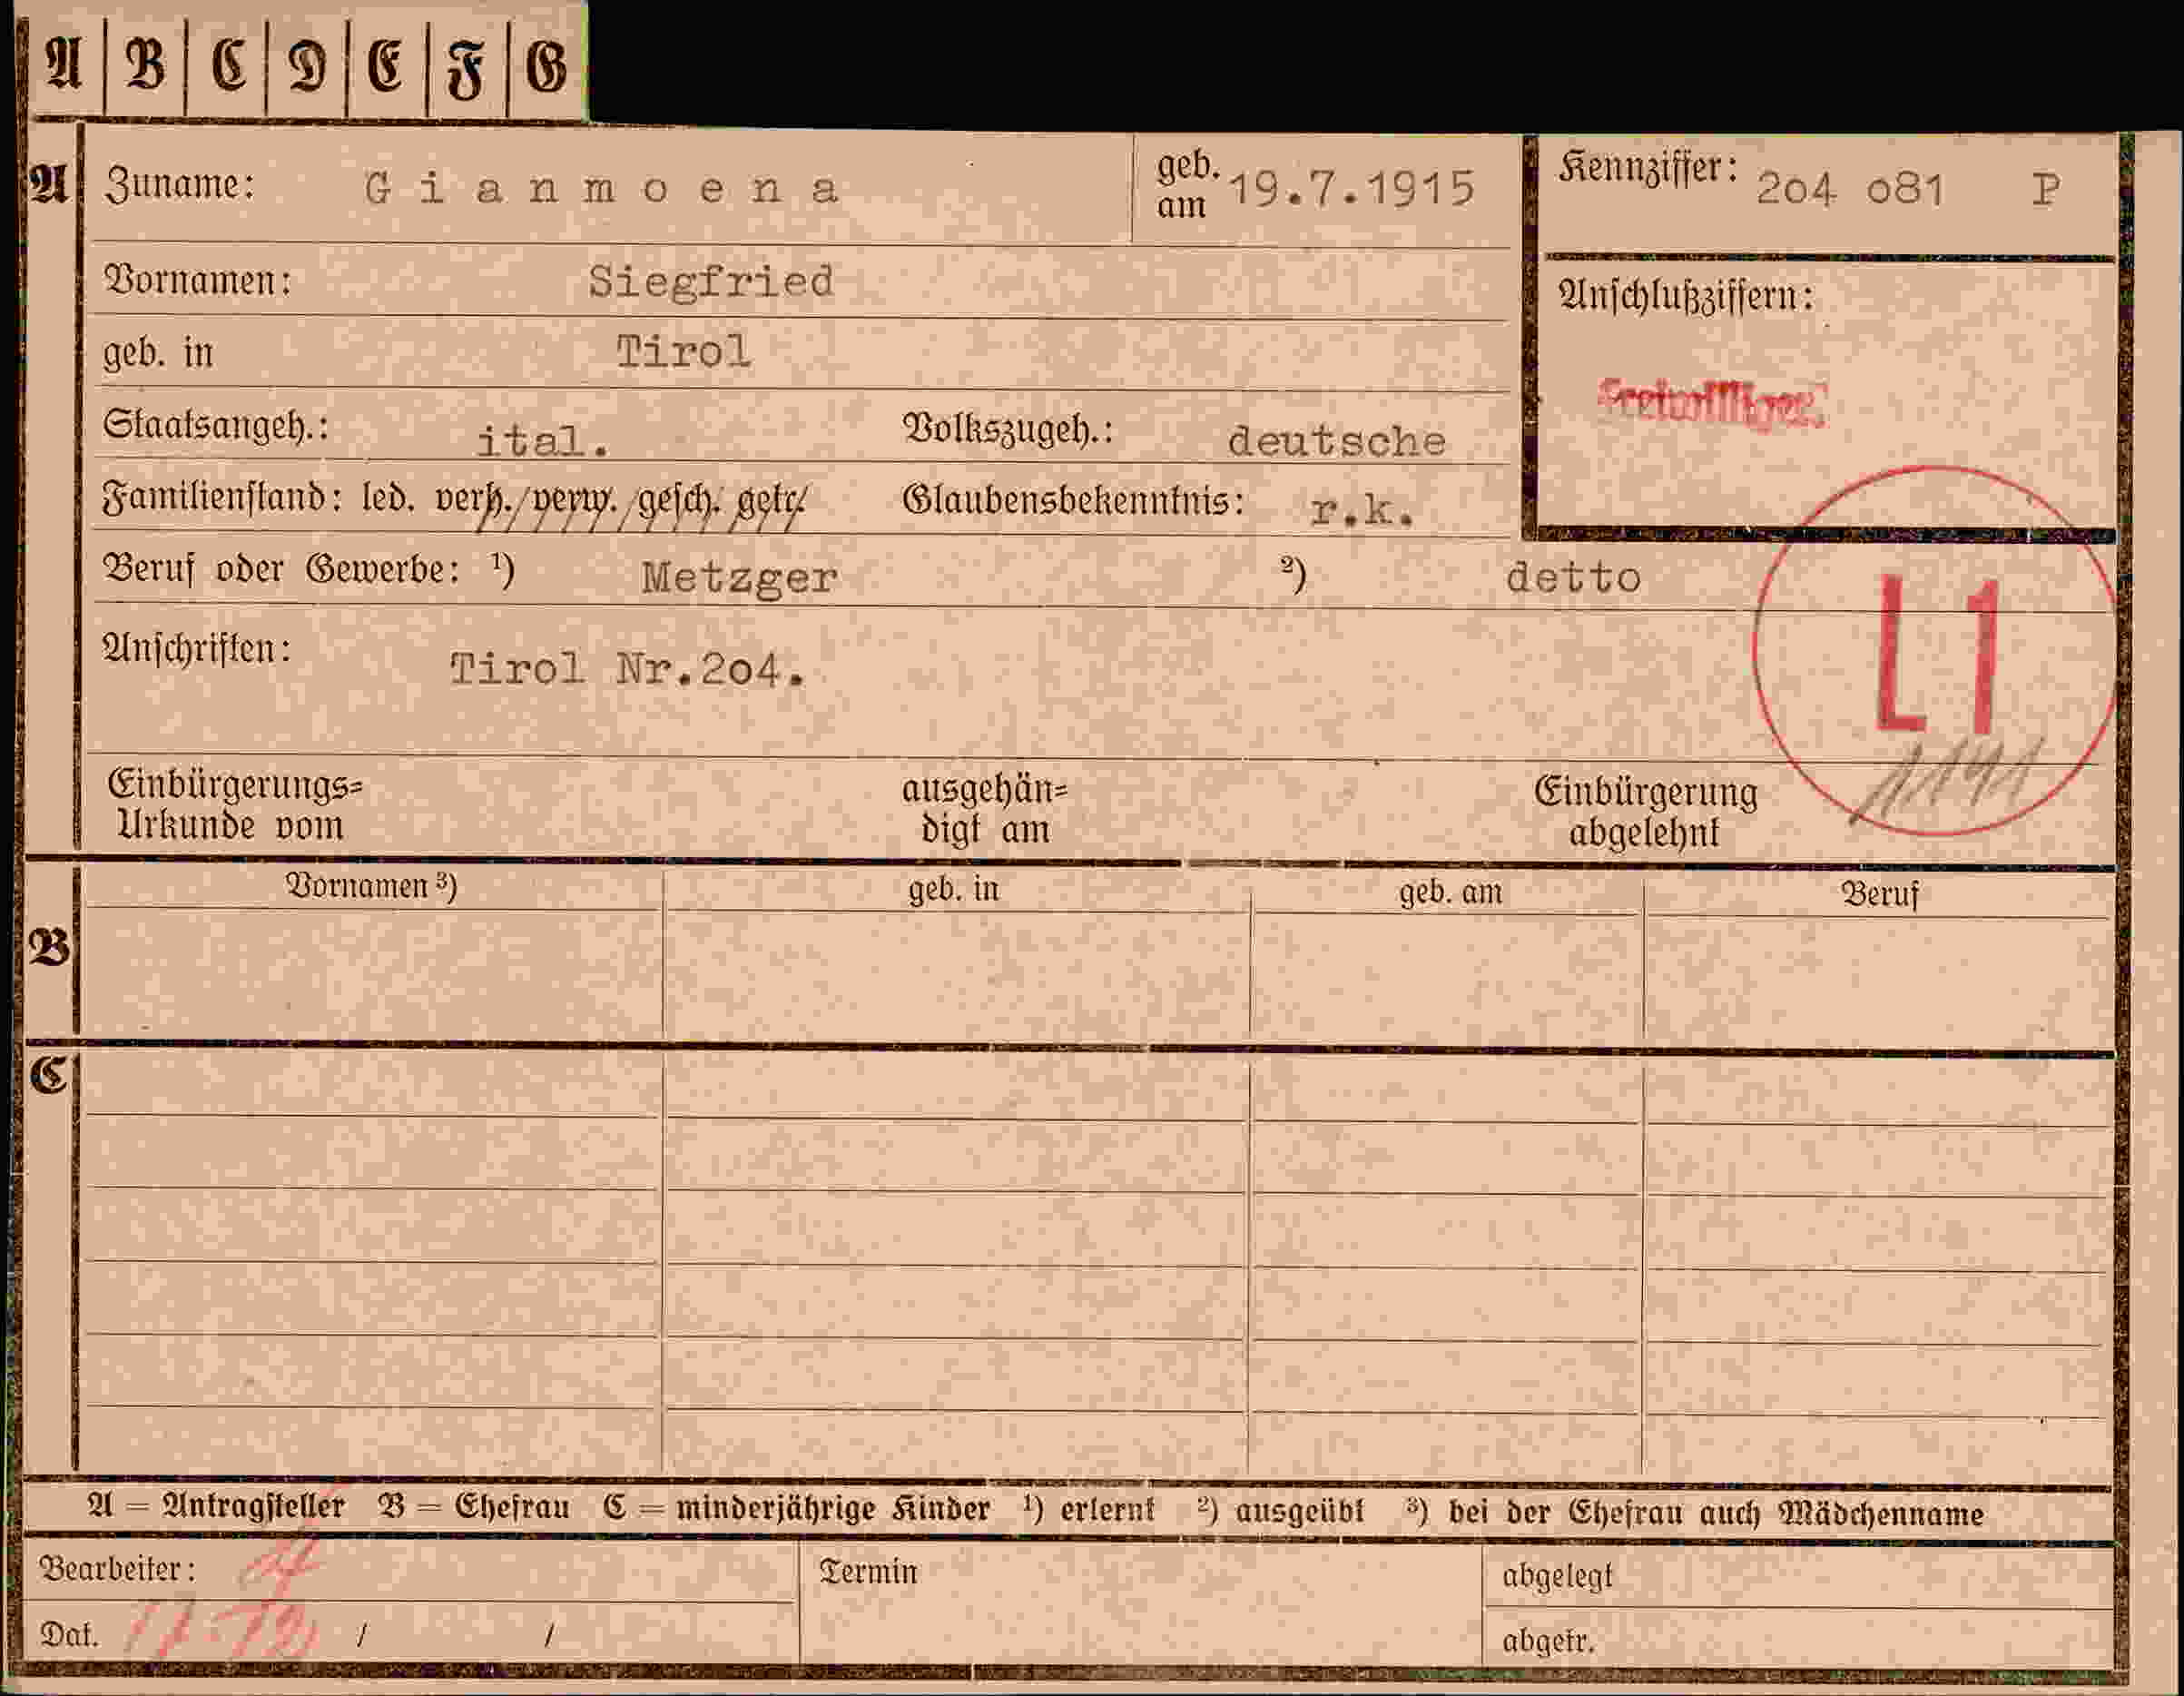 A B C D E F G
A Zuname: Gianmoena geb. am 19.7.1915 Kennziffer: 2o4 o81 P
Vornamen: Siegfried
Anschlußziffern:
geb. in Tirol
Freiwilliger
Staatsangeh.: ital. Volkszugeh.: deutsche
Familienstand: led. verh. verw. gesch. getr. Glaubensbekenntnis: r.k.
Beruf oder Gewerbe: ¹) Metzger ²) detto
L1
Anschriften: Tirol Nr.2o4.
Einbürgerungs=
Urkunde vom
ausgehän=
digt am
Einbürgerung
abgelehnt
B Vornamen ³) geb. in geb. am Beruf
C
A = Antragsteller B = Ehefrau C = minderjährige Kinder ¹) erlernt ²) ausgeübt ³) bei der Ehefrau auch Mädchenname
Bearbeiter: Termin abgelegt
Dat. / / abgetr.